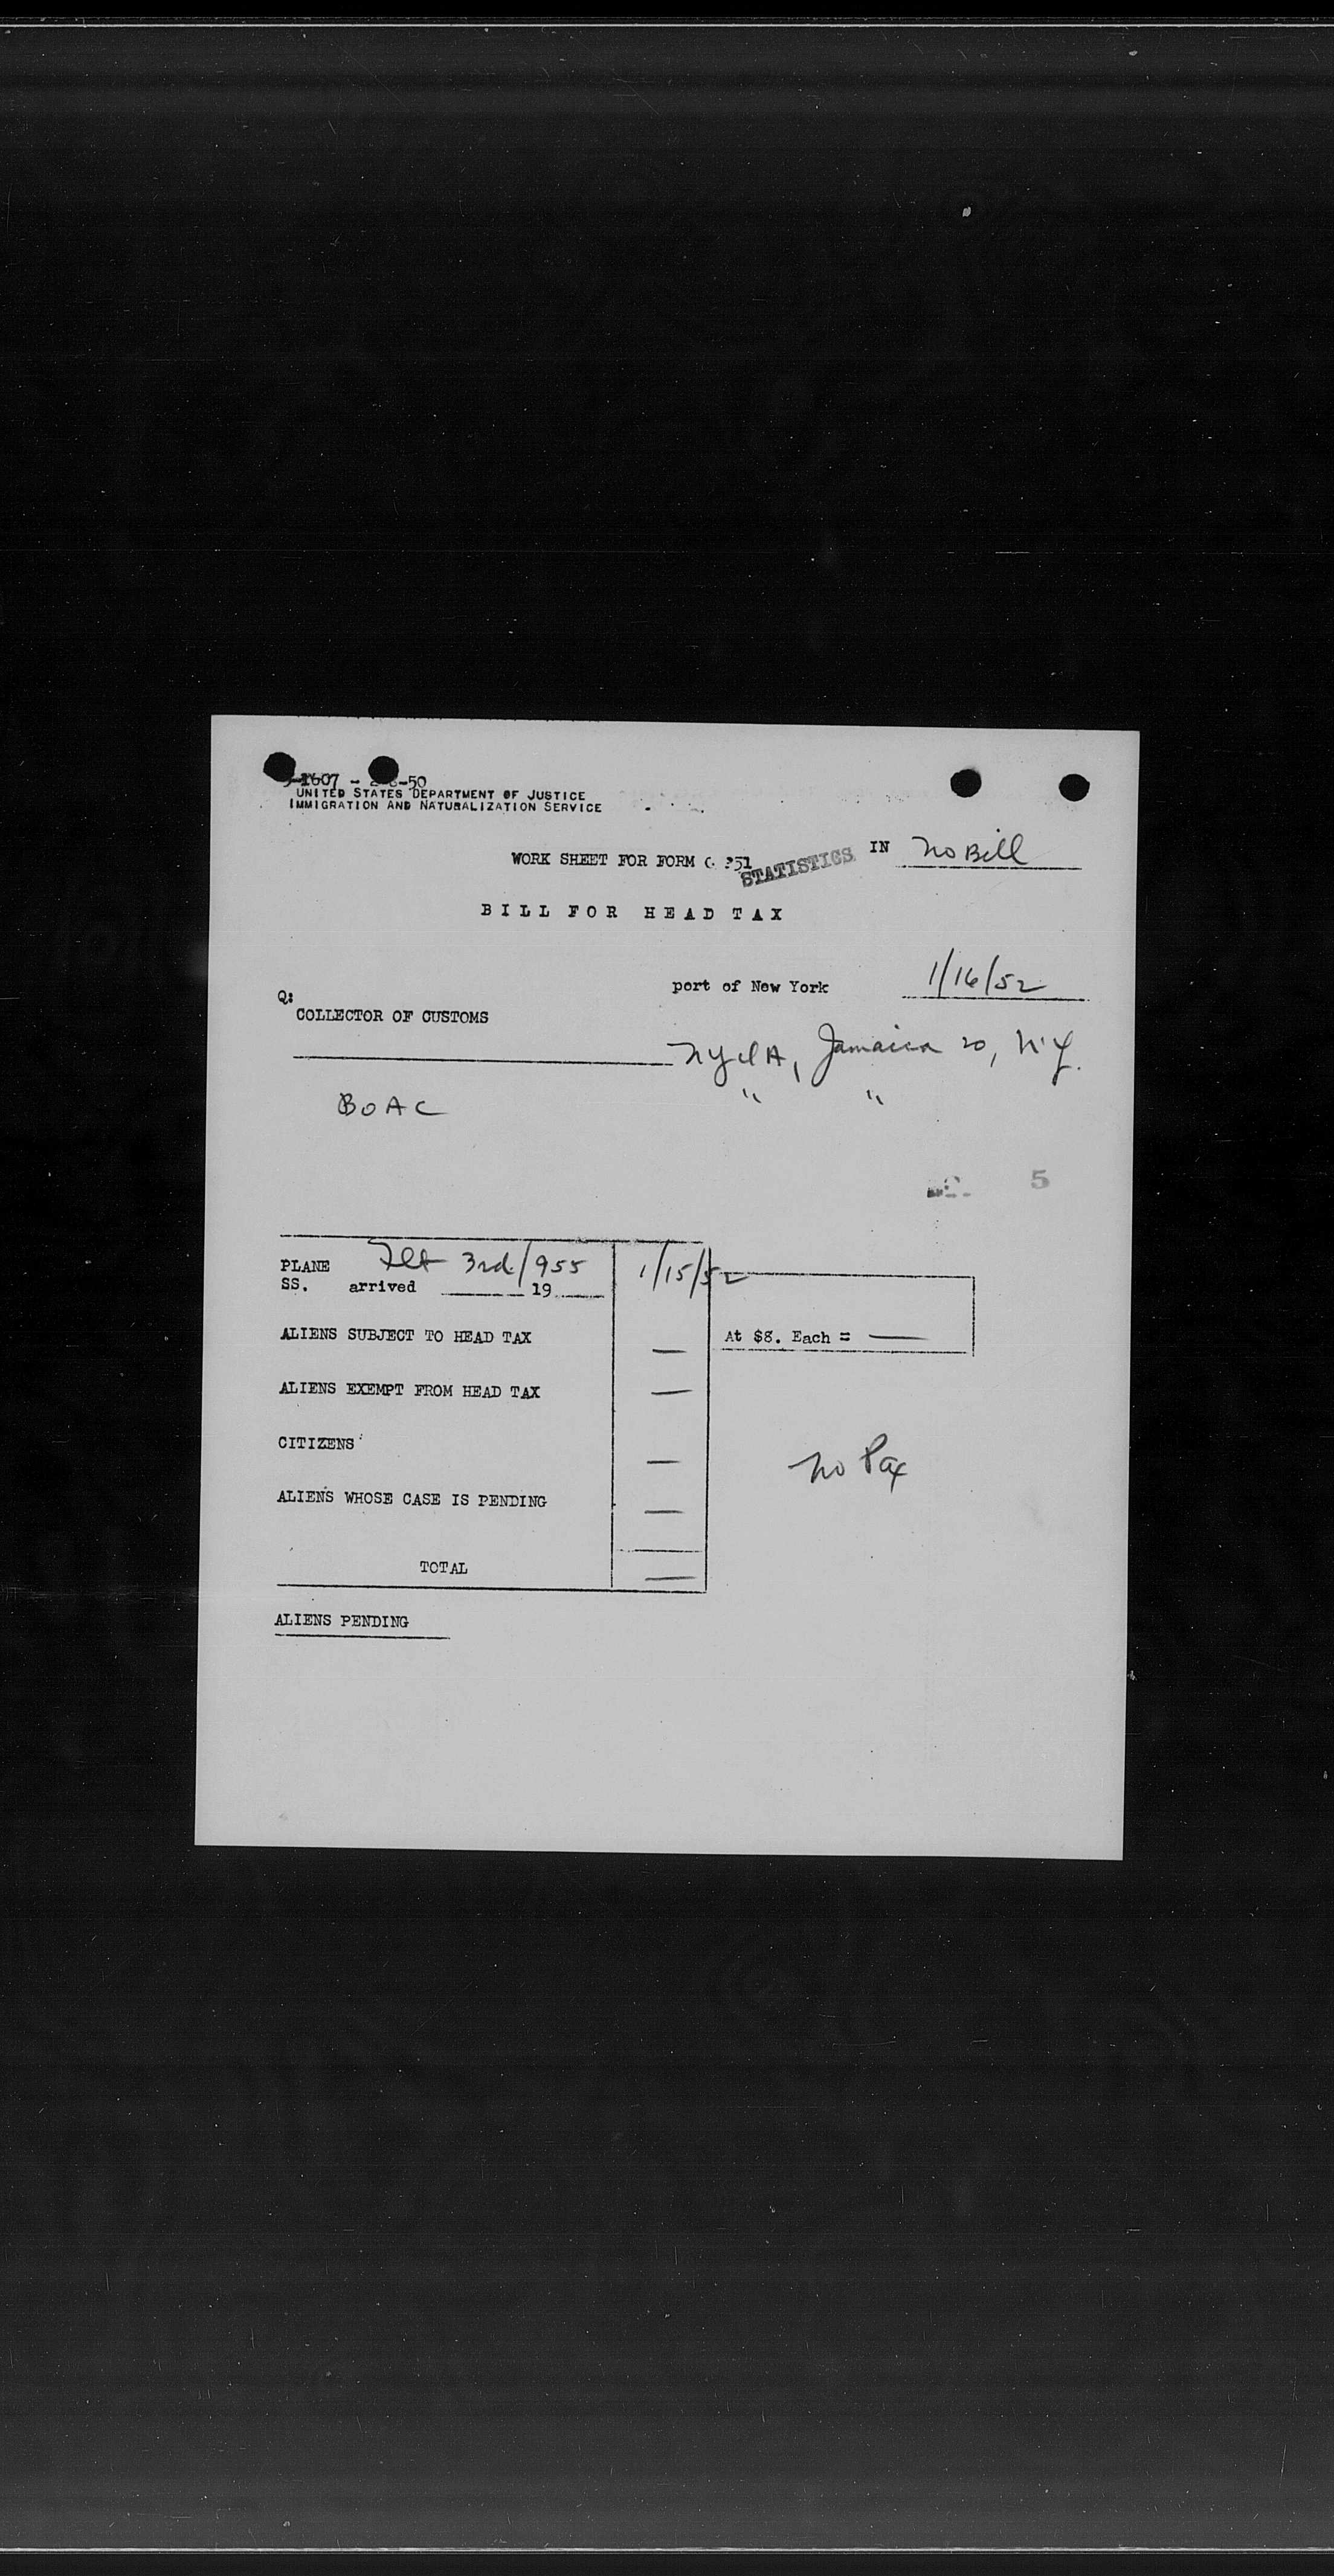 -1607 - -50
UNITED STATES DEPARTMENT OF JUSTICE
IMMIGRATION AND NATURALIZATION SERVICE
WORK SHEET FOR FORM 351
STATISTICS
IN No Bill
BILL FOR HEAD TAX
port of New York 1/16/52
Q:
COLLECTOR OF CUSTOMS
NYIA, Jamaica 20, N.Y.
BOAC " "
5
PLANE Flt 3rd/955 1/15/52
SS. arrived 19
ALIENS SUBJECT TO HEAD TAX — At $8. Each = —
ALIENS EXEMPT FROM HEAD TAX —
CITIZENS —
No Pax
ALIENS WHOSE CASE IS PENDING —
TOTAL —
ALIENS PENDING